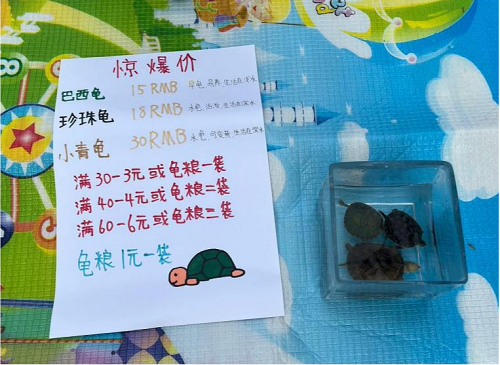 惊爆价
巴西龟 15RMB 旱龟,易养,生活在浅水
珍珠龟 18RMB 水龟,活泼,生活在深水
小青龟 30RMB 水龟,可安静,生活在深水
满30-3元或龟粮一袋
满40-4元或龟粮二袋
满60-6元或龟粮三袋
龟粮1元一袋